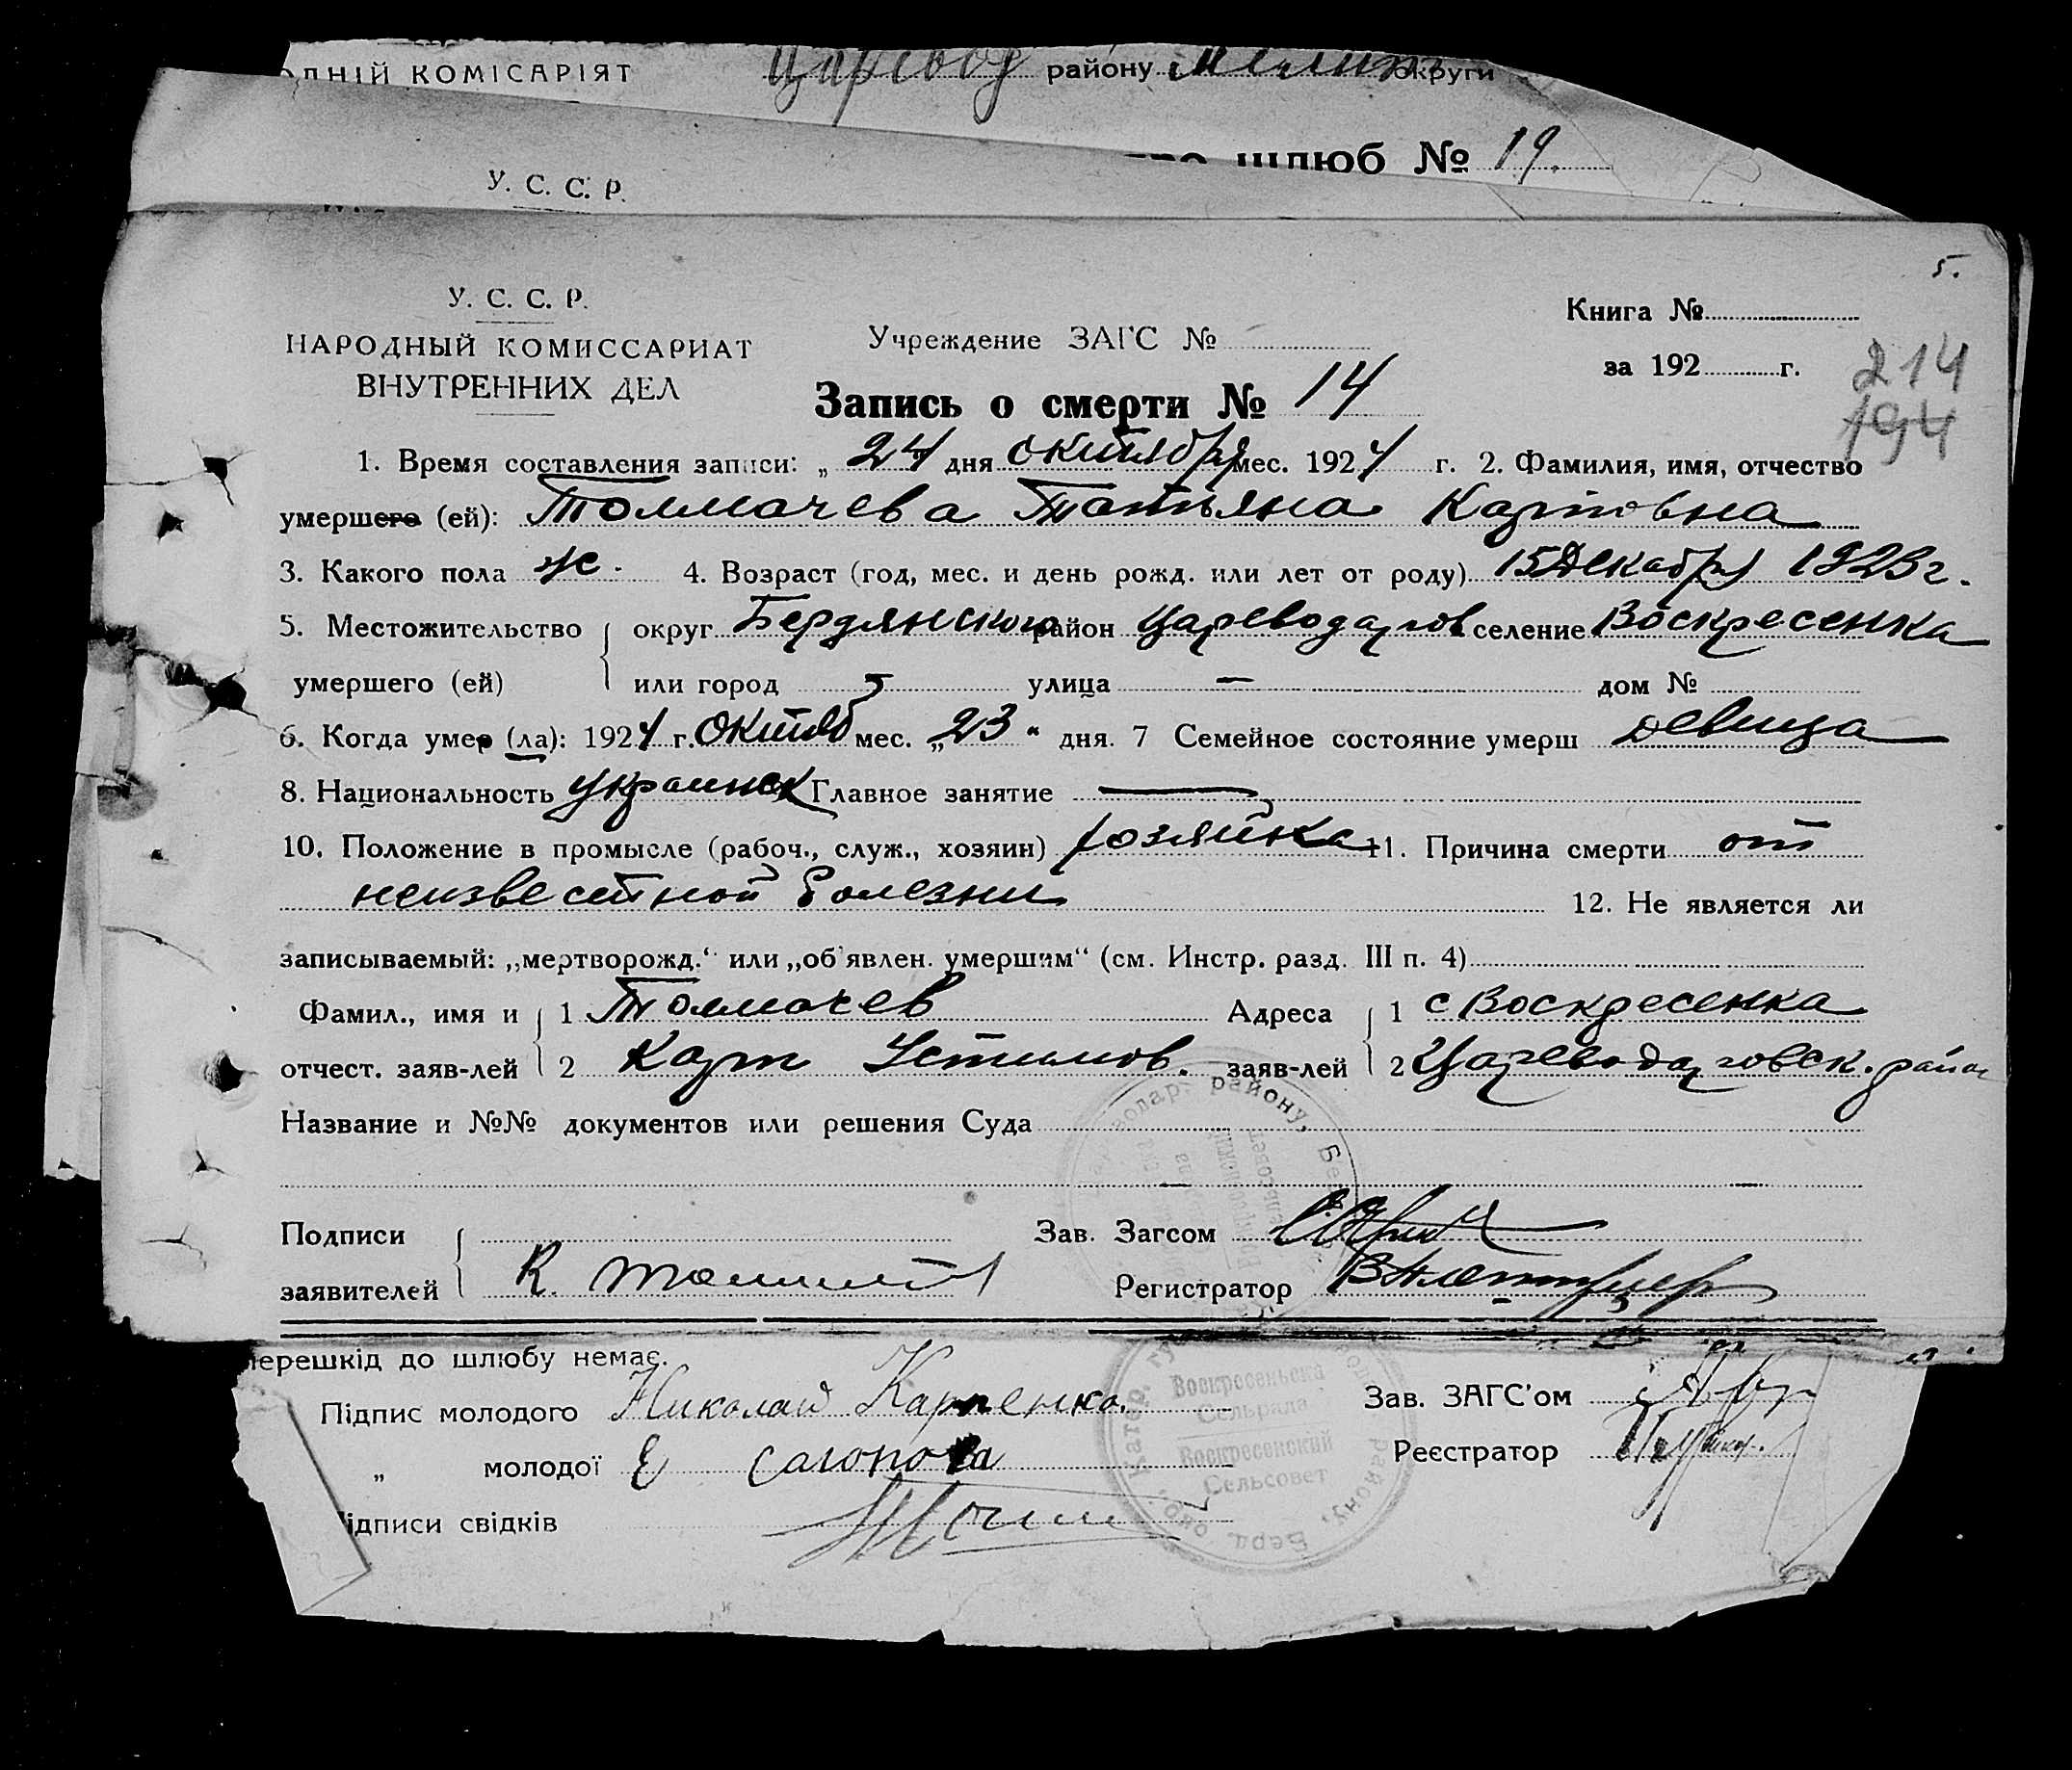 ОДНІЙ КОМІСАРІЯТ Царевод району Мелит округи
шлюб № 19.
У. С. С. Р.
5.
У. С. С. Р.
Книга №
НАРОДНЫЙ КОМИССАРИАТ
Учреждение ЗАГС №
за 192 г.
ВНУТРЕННИХ ДЕЛ
214
Запись о смерти № 14
194
1. Время составления записи: „ 24 дня октября мес. 1924 г. 2. Фамилия, имя, отчество
умершего (ей): Толмачева Татьяна Карповна
3. Какого пола ж. 4. Возраст (год, мес. и день рожд. или лет от роду) 15 Декабря 1923 г.
5. Местожительство округ Бердянского район Цареводаров селение Воскресенка
умершего (ей) или город улица — дом №
6. Когда умер (ла): 1924 г. Октяб мес. „23“ дня. 7 Семейное состояние умерш девица
8. Национальность украинск Главное занятие —
10. Положение в промысле (рабоч., служ., хозяин) хозяйка 11. Причина смерти от
неизвестной болезни 12. Не является ли
записываемый: „мертворожд.“ или „об'явлен. умершим“ (см. Инстр. разд. III п. 4)
Фамил., имя и 1 Толмачев Адреса 1 с Воскресенка
отчест. заяв-лей 2 Карп Устимов. заяв-лей 2 Цареводаровск. район
Название и №№ документов или решения Суда
Подписи Зав. Загсом
заявителей К. Регистратор
перешкід до шлюбу немає.
Підпис молодого Николай Карпенко. Зав. ЗАГС'ом
„ молодої Е Реєстратор
ідписи свідків
Воскресеньска
Сельрада
Воскресенский
Сельсовет
району, Берд. окр., Катер.